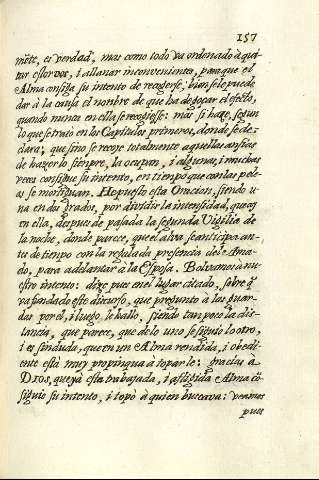 157
mẽte, es verdad, mas como todo va ordenado à qui-
tar estorvos, i allanar inconvenientes, para que el
Alma consiga su intento de recogerse; bien se le puede
dar à la causa el nombre de que ha de goçar el efeto,
quando nunca en ella se cogiesse: mas si haze, segun
lo que se traio en los Capitulos primeros, donde se de-
clara, que sino se recoge totalmente aquellas ansias
de hazerlo siempre, la ocupan, i alguna, i muchas
veces consigue su intento, en tiempo que con las pele-
as se mortifican. He puesto esta Oracion, siendo u-
na en dos grados, por dividir la intensidad, que ay
en ella, despues de pasada la segunda Vigilia de
la noche, donde parece, que el alva se anticipa an-
tu de tiempo con la regalada presencia del Ama-
do, para adelantar a la Esposa. Bolvamos à nu-
estro intento: dize pues en el lugar citado, sobre q̃
va fundado este discurso, que pregunto à las guar-
das por el, i luego le hallo, siendo tan poco la dis-
tancia, que parece, que de lo uno se siguio lo otro,
i es sin duda, que en un Alma rendida, i obedi-
ente està mui propinqua à toparle: gracias à
DIOS, que yà esta trabajada, i afligida Alma cõ-
siguio su intento, i topò à quien buscava: veamos
pues